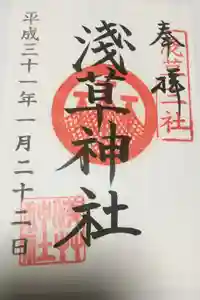 奉拝
浅草神社
平成三十一年一月二十二日